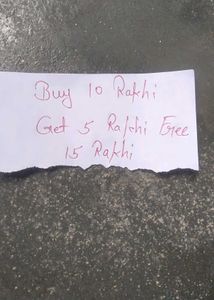 Buy 10 Rakhi
Get 5 Rakhi Free
15 Rakhi